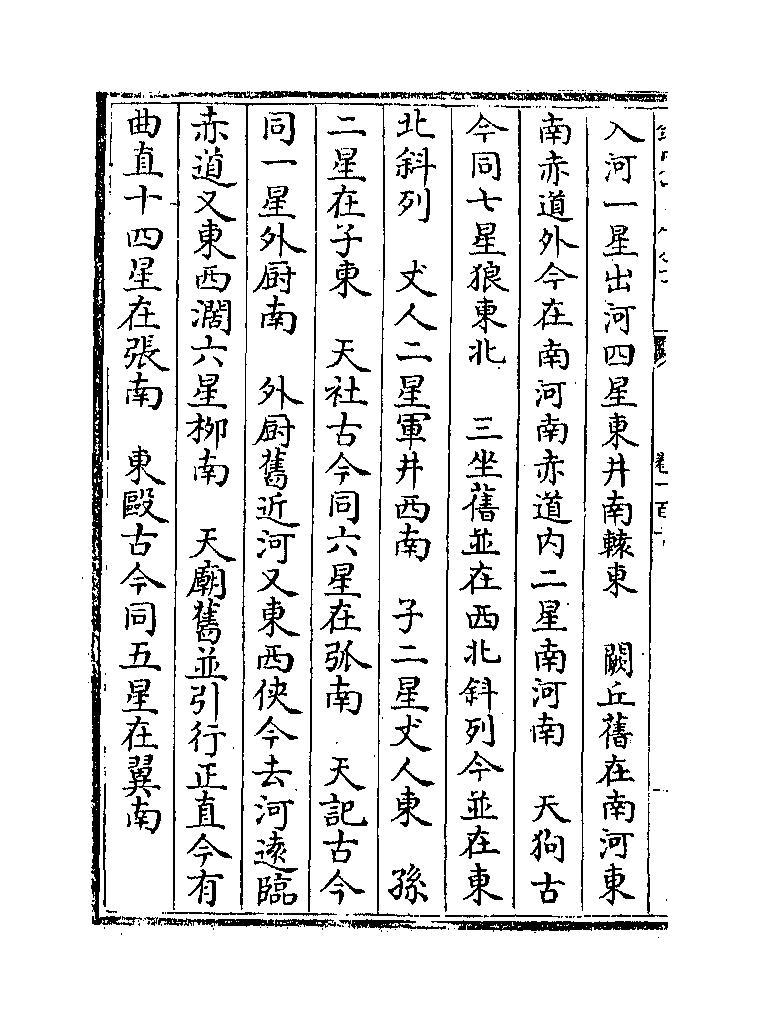 入河一星出河四星東井南轅東　闕丘舊在南河東
南赤道外今在南河南赤道内二星南河南　天狗古
今同七星狼東北　三坐舊並在西北斜列今並在東
北斜列　丈人二星軍井西南　子二星丈人東　孫
二星在子東　天社古今同六星在弧南　天記古今
同一星外厨南　外厨舊近河又東西俠今去河逺臨
赤道又東西濶六星栁南　天廟舊並引行正直今有
曲直十四星在張南　東甌古今同五星在翼南